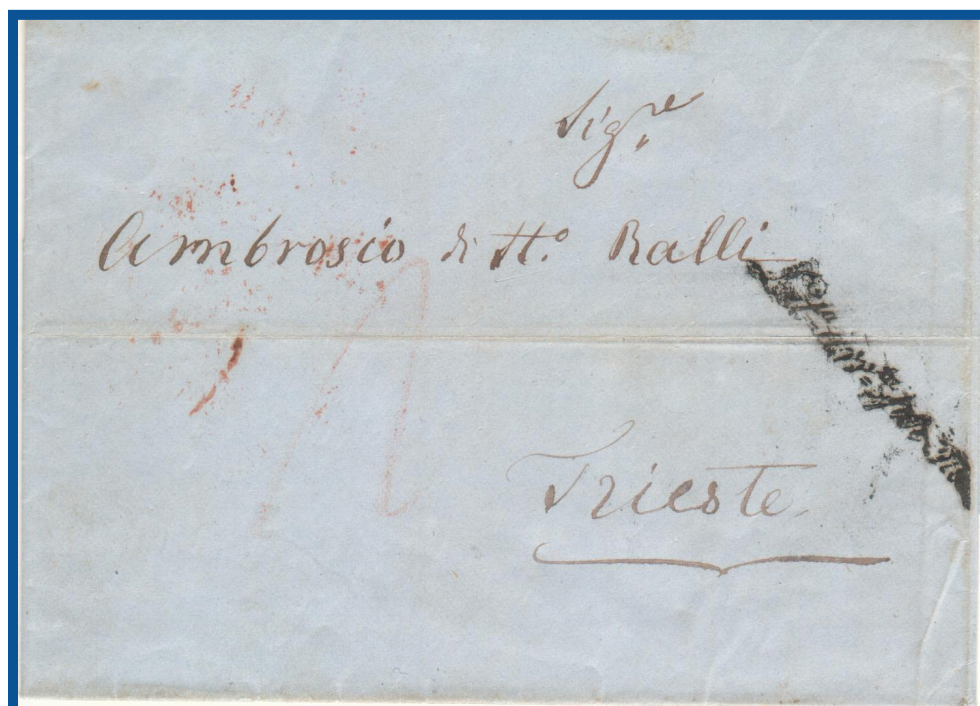 Sigre
Ambrosio di Sto. Ralli
Trieste